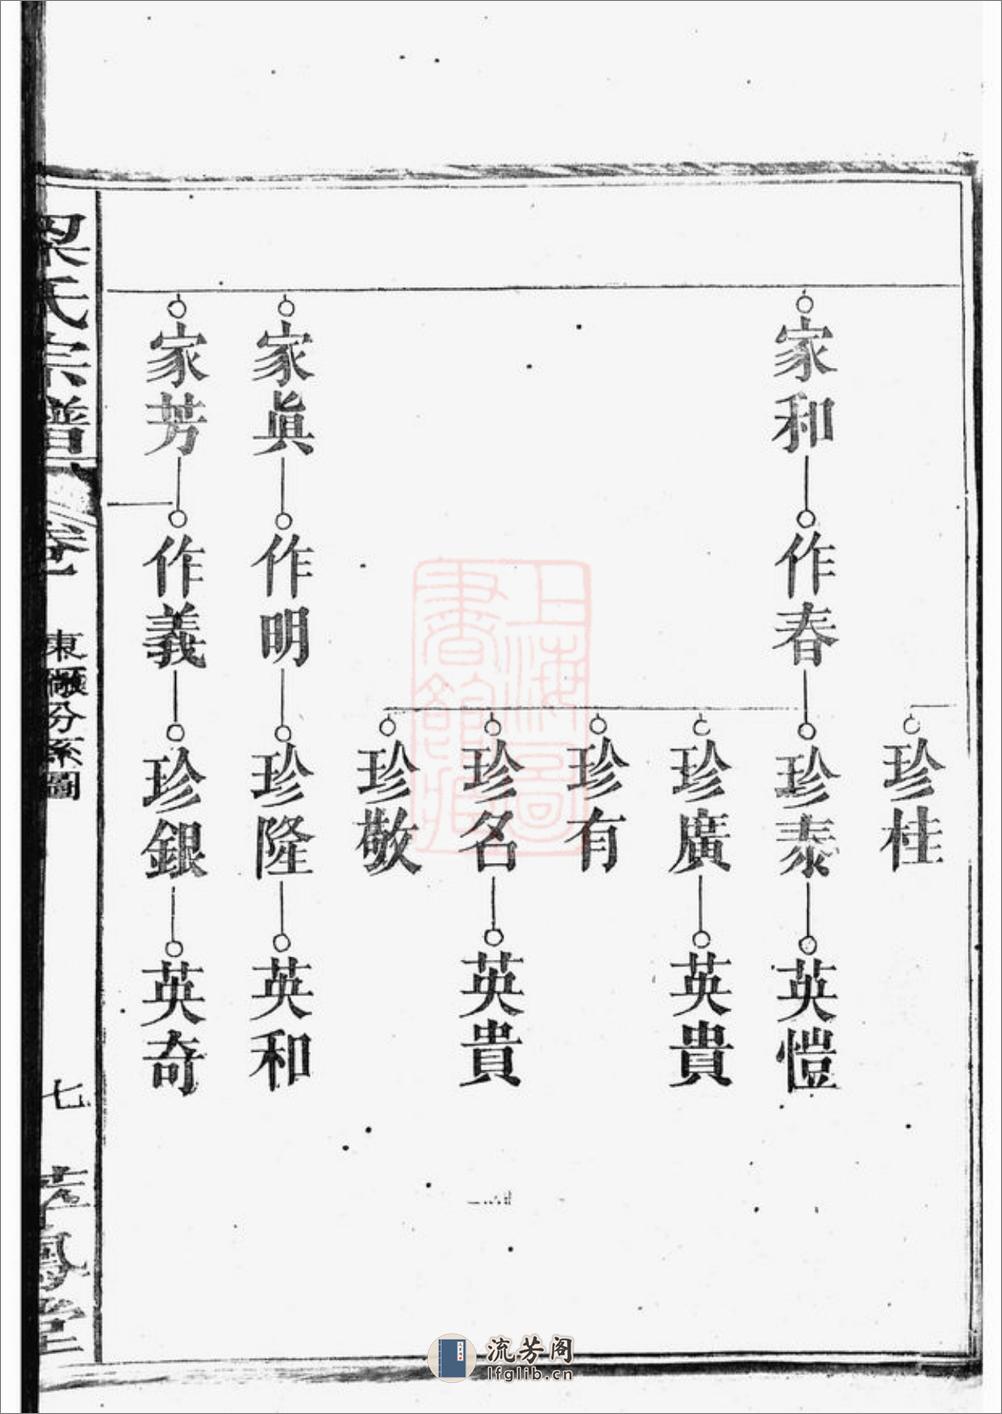 珍桂
家和 作春 珍泰 英愷
珍廣 英貴
珍有
珍名 英貴
珍敬
家眞 作明 珍隆 英和
家芳 作義 珍銀 英奇
梁氏宗譜 卷一 東 分系圖 七 鳳堂
上海圖書館藏
流芳阁
lfglib.cn